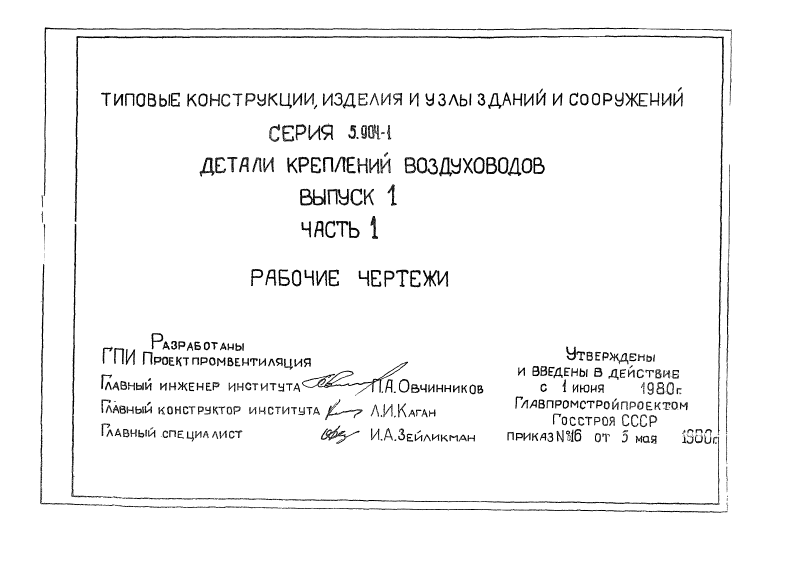 ТИПОВЫЕ КОНСТРУКЦИИ, ИЗДЕЛИЯ И УЗЛЫ ЗДАНИЙ И СООРУЖЕНИЙ
СЕРИЯ 5.904-1
ДЕТАЛИ КРЕПЛЕНИЙ ВОЗДУХОВОДОВ
ВЫПУСК 1
ЧАСТЬ 1
РАБОЧИЕ ЧЕРТЕЖИ
РАЗРАБОТАНЫ
ГПИ ПРОЕКТПРОМВЕНТИЛЯЦИЯ
ГЛАВНЫЙ ИНЖЕНЕР ИНСТИТУТА П.А.ОВЧИННИКОВ
ГЛАВНЫЙ КОНСТРУКТОР ИНСТИТУТА Л.И.КАГАН
ГЛАВНЫЙ СПЕЦИАЛИСТ И.А.ЗЕЙЛИКМАН
УТВЕРЖДЕНЫ
И ВВЕДЕНЫ В ДЕЙСТВИЕ
С 1 ИЮНЯ 1980г.
ГЛАВПРОМСТРОЙПРОЕКТОМ
ГОССТРОЯ СССР
ПРИКАЗ №16 ОТ 5 МАЯ 1980г.